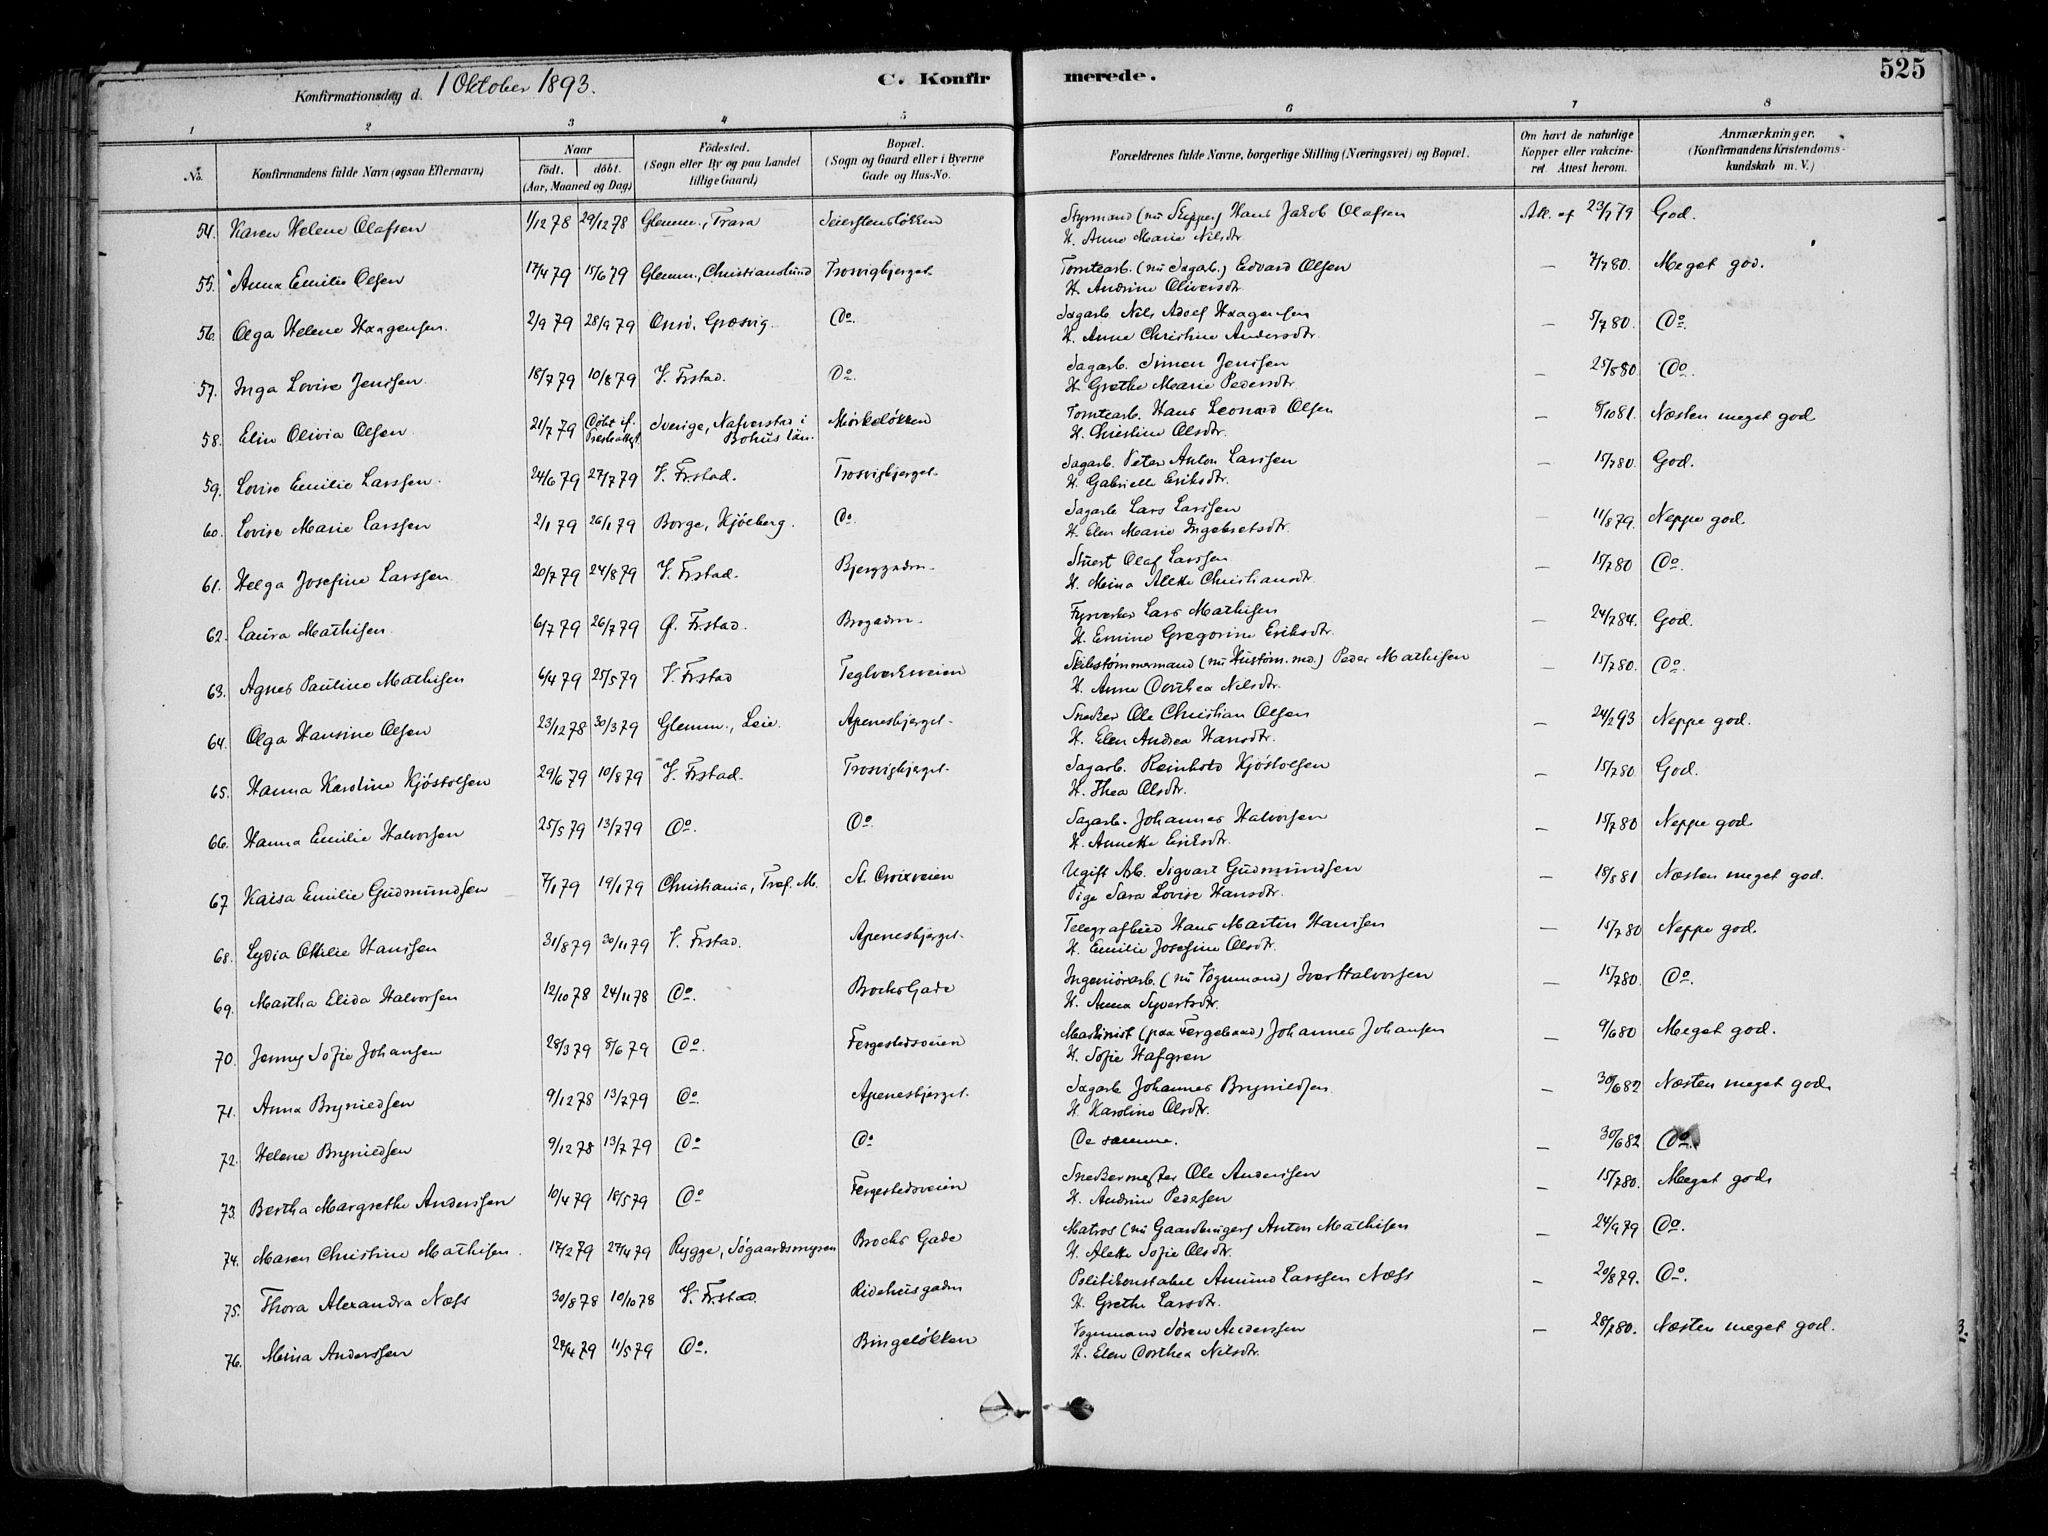 525
Konfirmationsdag d. 1 Oktober 1893. C. Konfirmerede.
1 2 3 4 5 6 7 8
No. Konfirmandens fulde Navn (ogsaa Efternavn) Naar födt. döbt. (Aar, Maaned og Dag) Födested. (Sogn eller By og paa Landet tillige Gaard) Bopæl. (Sogn og Gaard eller i Byerne Gade og Hus-No. Forældrenes fulde Navne, borgerlige Stilling (Næringsvei) og Bopæl. Om havt de naturlige Kopper eller vakcineret. Attest herom. Anmærkninger. (Konfirmandens Kristendomskundskab m. V.)
54. Karen Helene Olafsen 1/12 78 29/12 78 Glemm., Trara Seierstensløkken Styrmand (nu Skipper) Hans Jakob Olafsen Att. af 23/7 79 God.
H. Anne Marie Nilsdtr.
55. Anna Emilie Olsen 17/4 79 15/6 79 Glemm., Christianslund Trosvigbjerget. Tomtearb. (nu Sagarb.) Edvard Olsen — 7/7 80. Meget god.
H. Andrine Oliversdtr.
56. Olga Helene Haagensen. 2/9 79 28/9 79 Onsö, Græsvig. Do. Sagarb. Nils Adolf Haagensen — 5/7 80. Do.
H. Anne Christine Andersdtr.
57. Inga Lovise Jenssen. 18/7 79 10/8 79 V. Frstad. Do. Sagarb. Simen Jenssen — 25/8 80 Do.
H. Grethe Marie Pedersdtr.
58. Elin Olivia Olsen. 21/7 79 Döbt if. Sverige, Nafverstad i Bohus län. Mørkeløkken Tomtearb. Hans Leonard Olsen — 8/10 81. Næsten meget god
H. Christine Olsdtr.
59. Lovise Emilie Larssen. 24/6 79 27/7 79 V. Frstad. Trosvigbjerget. Sagarb. Peter Anton Larssen — 15/7 80. God.
H. Gabrielle Eriksdtr.
60. Lovise Marie Larssen 2/1 79 26/1 79 Borge, Kjölberg. Do. Sagarb. Lars Larssen — 11/8 79. Neppe god.
H. Elen Marie Ingebretsdtr.
61. Helga Josefine Larssen. 20/7 79 24/8 79 V. Frstad. Bjerggadn. Stuert Olaf Larssen — 15/7 80 Do.
H. Meina Alette Christiansdtr.
62. Laura Mathisen. 6/7 79 26/7 79 Ø. Frstad. Brogadn. Fyrværker Lars Mathisen — 24/7 84. God.
H. Emine Gregorine Eriksdtr.
63. Agnes Pauline Mathisen 6/4 79 25/5 79 V. Frstad Teglverksveien Skibstømmermand (nu Hustøm.md.) Peder Mathisen — 15/7 80. Do.
H. Anne Dorthea Nilsdtr.
64. Olga Hansine Olsen 23/12 78 30/3 79 Glemm., Leie. Apenesbjerget. Snedker Ole Christian Olsen — 24/2 93 Neppe god.
H. Elen Andrea Hansdtr.
65. Hanna Karoline Kjöstolsen 29/6 79 10/8 79 V. Frstad. Trosvigbjerget. Sagarb. Reinhold Kjöstolsen — 15/7 80 God.
H. Thea Olsdtr.
66. Hanna Emilie Halvorsen 25/5 79 13/7 79 Do. Do. Sagarb. Johannes Halvorsen — 15/7 80 Neppe god
H. Annette Eriksdtr.
67 Kaisa Emilie Gudmundsen 7/1 79 19/1 79 Christiania, Tref. M. St. Croixveien Ugift Arb. Sigvart Gudmundsen — 18/8 81 Næsten meget god.
Pige Sara Lovise Hansdtr.
68. Lydia Ottilie Hanssen 31/8 79 30/11 79 V. Frstad. Apenesbjerget. Telegrafbud Hans Martin Hanssen — 15/7 80 Neppe god.
H. Emilie Josefine Olsdtr.
69. Martha Elida Halvorsen 12/10 78 24/11 78 Do. Brochs Gade Ingeniörarb. (nu Vognmand) Iver Halvorsen — 15/7 80. Do.
H. Anna Syvertsdtr.
70. Jenny Sofie Johansen 28/3 79 8/6 79 Do. Fergestedsveien Maskinist (paa Fergebaad) Johannes Johansen — 9/6 80 Meget god.
H. Sofie Hafgren
71. Anna Bryniedsen 9/12 78 13/7 79 Do. Apenesbjerget. Sagarb. Johannes Bryniedsen — 30/6 82 Næsten meget god.
H. Karoline Olsdtr.
72. Helene Bryniedsen 9/12 78 13/7 79 Do Do De samme. — 30/6 82 Do.
73. Bertha Margrethe Anderssen 10/4 79 18/5 79 Do Fergestedsveien Snedkermester Ole Anderssen — 15/7 80. Meget god.
H. Andrine Pedersen
74. Maren Christine Mathisen. 17/2 79 27/4 79 Rygge, Sögaardsmyren Brochs Gade Matros (nu Gaardbruger) Anton Mathisen — 24/9 79 Do.
H. Alette Sofie Olsdtr.
75. Thora Alexandra Næss 30/8 78 10/10 78 V. Frstad Ridehusgadn Politikonstabel Amund Larssen Næss — 20/8 79. Do.
H. Grethe Larsdtr.
76. Meina Anderssen 28/4 79 11/5 79 Do. Bingeløkken Vognmand Søren Anderssen — 28/7 80. Næsten meget god.
H. Elen Dorthea Nilsdtr.